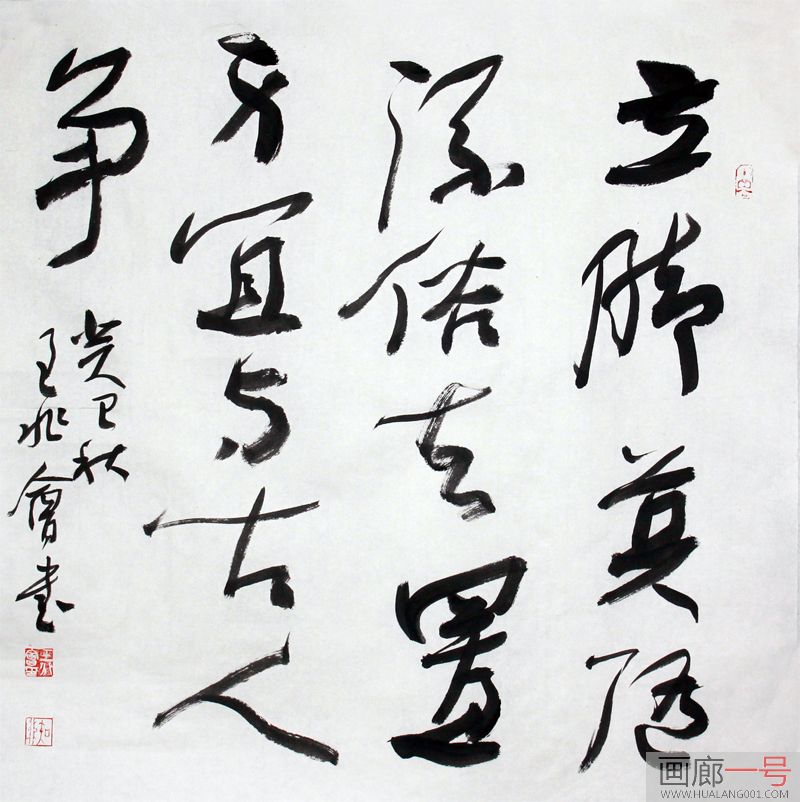 立脚莫随
流俗去置
身宜与古人
争
癸巳秋
王兆會书
画廊一号
WWW.HUALANG001.COM